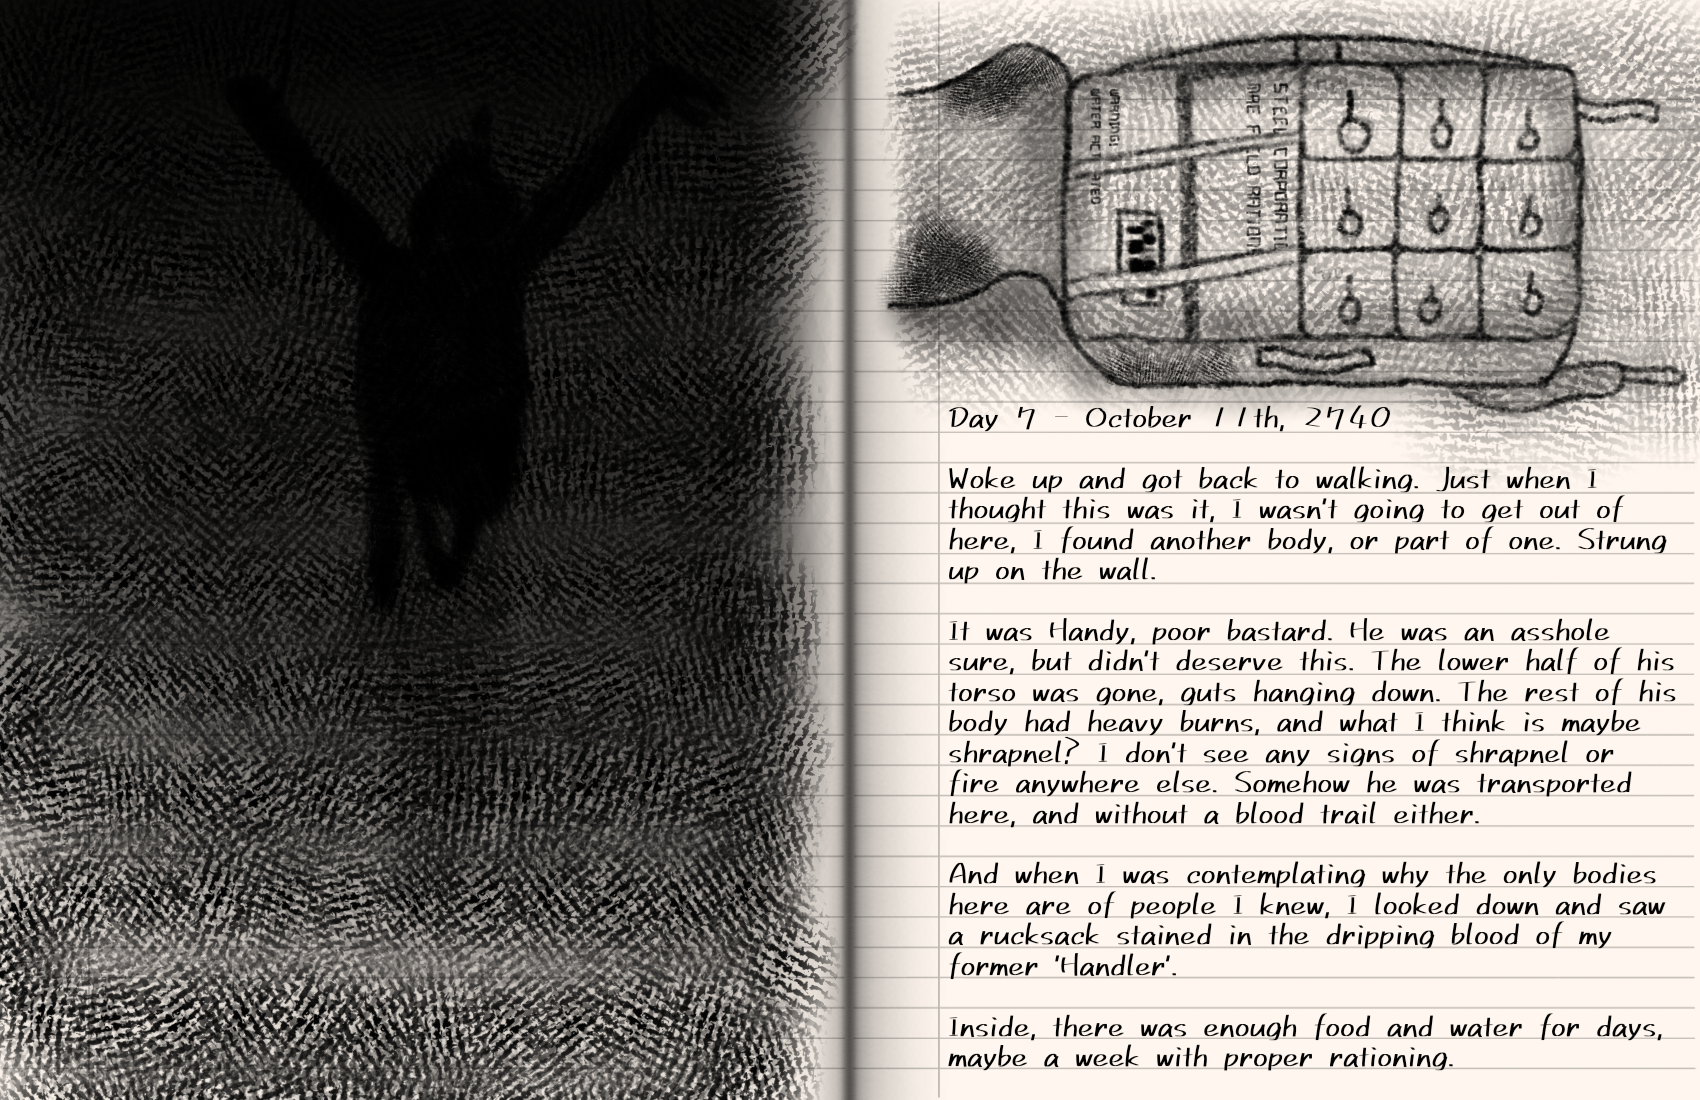 WARNING!
WATER ACTIVATED
STEEL CORPORATIO
MRE FIELD RATION
Day 7 - October 11th, 2740
Woke up and got back to walking. Just when I
thought this was it, I wasn't going to get out of
here, I found another body, or part of one. Strung
up on the wall.
It was Handy, poor bastard. He was an asshole
sure, but didn't deserve this. The lower half of his
torso was gone, guts hanging down. The rest of his
body had heavy burns, and what I think is maybe
shrapnel? I don't see any signs of shrapnel or
fire anywhere else. Somehow he was transported
here, and without a blood trail either.
And when I was contemplating why the only bodies
here are of people I knew, I looked down and saw
a rucksack stained in the dripping blood of my
former 'Handler'.
Inside, there was enough food and water for days,
maybe a week with proper rationing.